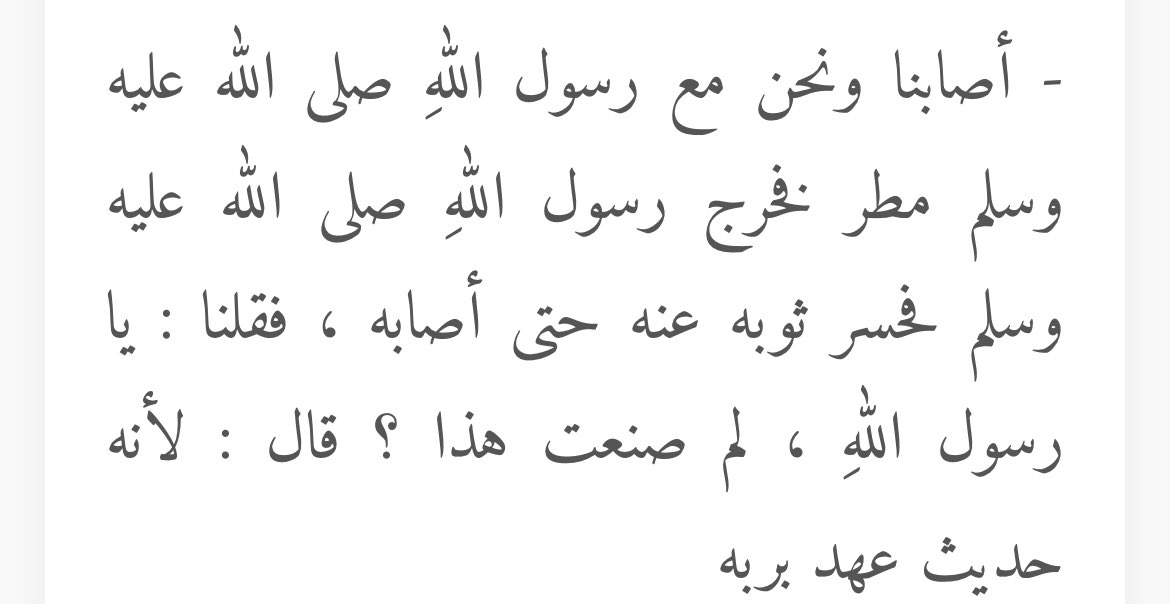 - أصابنا ونحن مع رسول اللهِ صلى الله عليه
وسلم مطر فخرج رسول اللهِ صلى الله عليه
وسلم فحسر ثوبه عنه حتى أصابه ، فقلنا : يا
رسول اللهِ ، لم صنعت هذا ؟ قال : لأنه
حديث عهد بربه